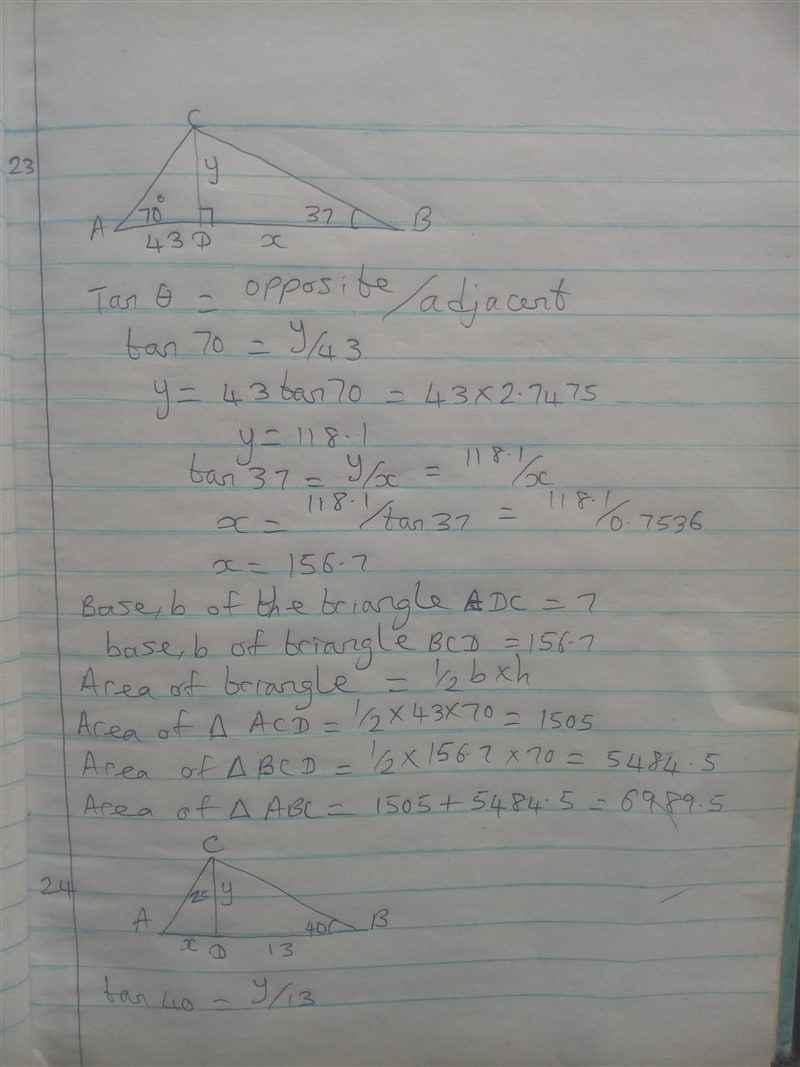 C
23
y
A 70° 37 B
43 D x
Tan θ = opposite/adjacent
tan 70 = y/43
y = 43 tan 70 = 43 × 2.7475
y = 118.1
tan 37 = y/x = 118.1/x
x = 118.1/tan 37 = 118.1/0.7536
x = 156.7
Base, b of the triangle ADC = 7
base, b of triangle BCD = 156.7
Area of triangle = 1/2 b × h
Area of Δ ACD = 1/2 × 43 × 70 = 1505
Area of Δ BCD = 1/2 × 156.7 × 70 = 5484.5
Area of Δ ABC = 1505 + 5484.5 = 6989.5
C
24
25 y
A 40 B
x D 13
tan 40 = y/13